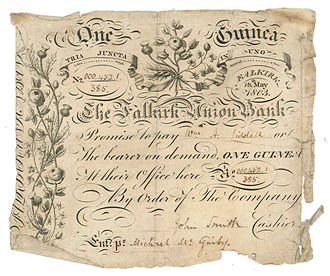 One Guinea
TRIA JUNCTA IN UNO
No 000,452.1
385.
FALKIRK
16 May
1813.
The Falkirk Union Bank
Promise to pay Wm A. or
The bearer on demand, ONE GUINEA
At their Office here No 000452.1
385
By Order of The Company
John Smith Cashier.
Entd. pr. Michael